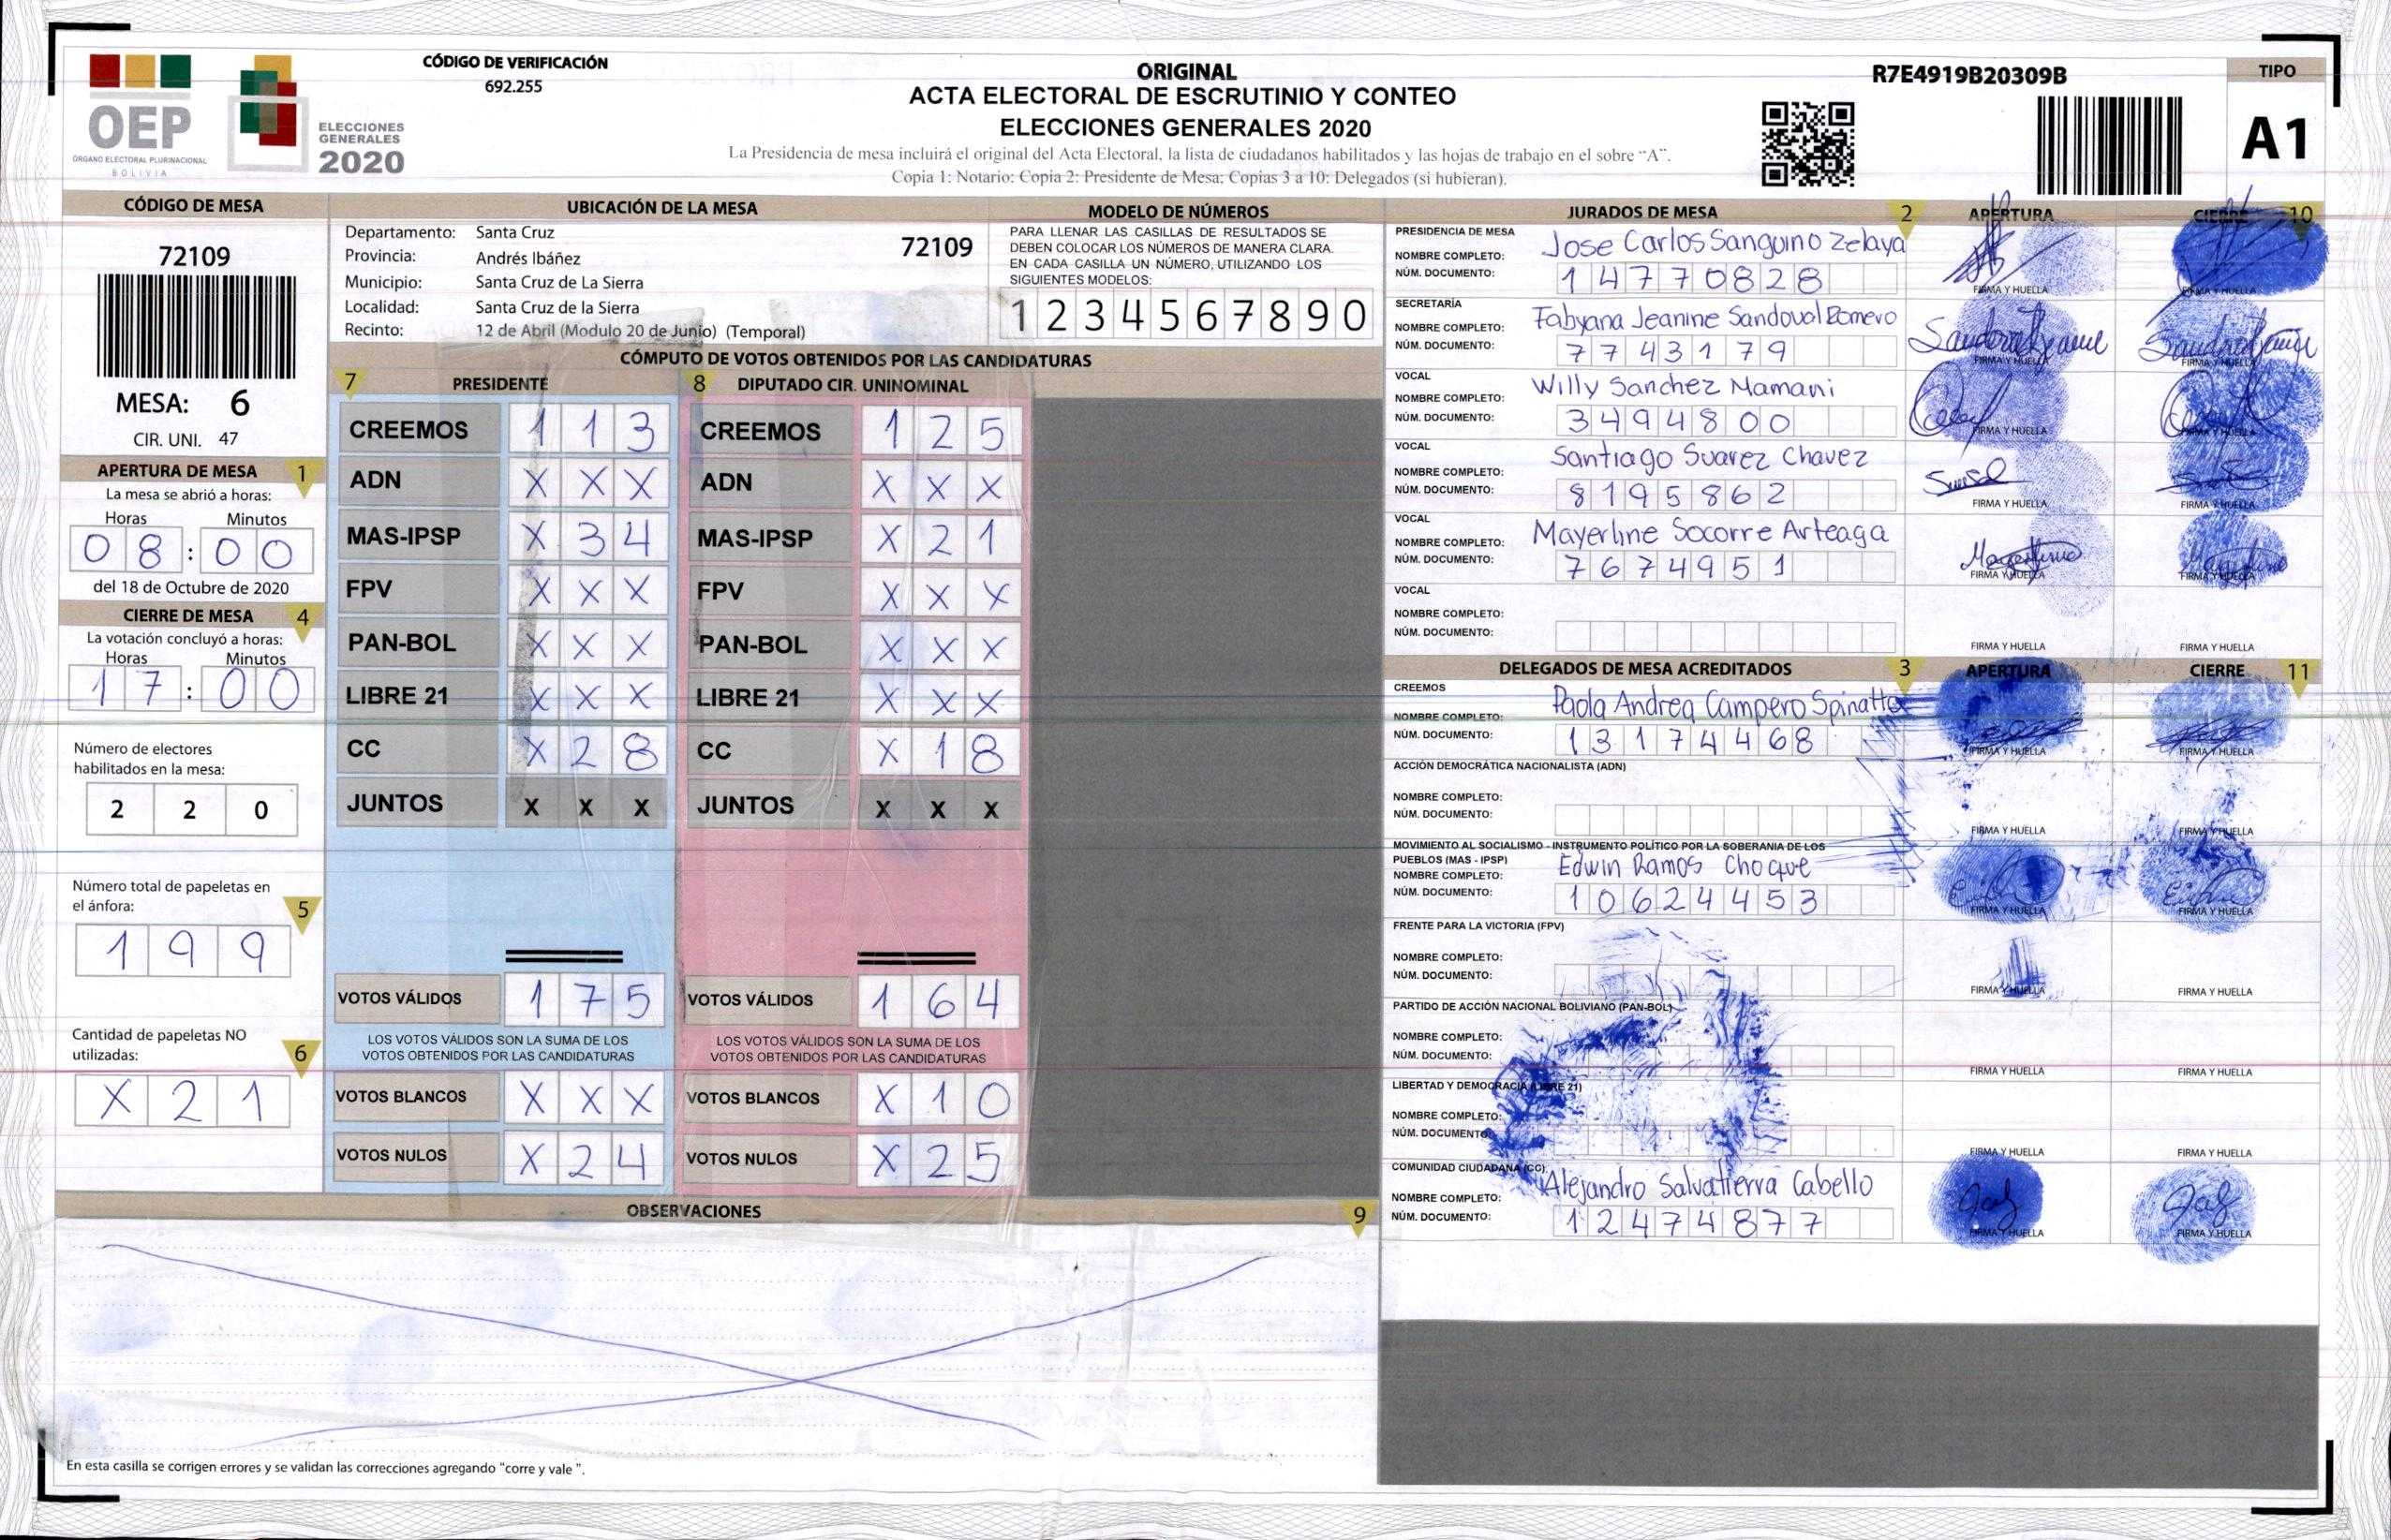 CÓDIGO DE VERIFICACIÓN
692.255
OEP
ÓRGANO ELECTORAL PLURINACIONAL
BOLIVIA
ELECCIONES
GENERALES
2020
ORIGINAL
ACTA ELECTORAL DE ESCRUTINIO Y CONTEO
ELECCIONES GENERALES 2020
La Presidencia de mesa incluirá el original del Acta Electoral, la lista de ciudadanos habilitados y las hojas de trabajo en el sobre "A".
Copia 1: Notario: Copia 2: Presidente de Mesa: Copias 3 a 10: Delegados (si hubieran).
R7E4919B20309B
TIPO
A1
CÓDIGO DE MESA
72109
MESA: 6
CIR. UNI. 47
APERTURA DE MESA 1
La mesa se abrió a horas:
Horas Minutos
08:00
del 18 de Octubre de 2020
CIERRE DE MESA 4
La votación concluyó a horas:
Horas Minutos
17:00
Número de electores
habilitados en la mesa:
2 2 0
Número total de papeletas en
el ánfora: 5
1 9 9
Cantidad de papeletas NO
utilizadas: 6
X 2 1
UBICACIÓN DE LA MESA
Departamento: Santa Cruz 72109
Provincia: Andrés Ibáñez
Municipio: Santa Cruz de La Sierra
Localidad: Santa Cruz de la Sierra
Recinto: 12 de Abril (Modulo 20 de Junio) (Temporal)
MODELO DE NÚMEROS
PARA LLENAR LAS CASILLAS DE RESULTADOS SE
DEBEN COLOCAR LOS NÚMEROS DE MANERA CLARA.
EN CADA CASILLA UN NÚMERO, UTILIZANDO LOS
SIGUIENTES MODELOS:
1 2 3 4 5 6 7 8 9 0
CÓMPUTO DE VOTOS OBTENIDOS POR LAS CANDIDATURAS
7 PRESIDENTE 8 DIPUTADO CIR. UNINOMINAL
CREEMOS 1 1 3 CREEMOS 1 2 5
ADN X X X ADN X X X
MAS-IPSP X 3 4 MAS-IPSP X 2 1
FPV X X X FPV X X X
PAN-BOL X X X PAN-BOL X X X
LIBRE 21 X X X LIBRE 21 X X X
CC X 2 8 CC X 1 8
JUNTOS X X X JUNTOS X X X
VOTOS VÁLIDOS 1 7 5 VOTOS VÁLIDOS 1 6 4
LOS VOTOS VÁLIDOS SON LA SUMA DE LOS LOS VOTOS VÁLIDOS SON LA SUMA DE LOS
VOTOS OBTENIDOS POR LAS CANDIDATURAS VOTOS OBTENIDOS POR LAS CANDIDATURAS
VOTOS BLANCOS X X X VOTOS BLANCOS X 1 0
VOTOS NULOS X 2 4 VOTOS NULOS X 2 5
OBSERVACIONES 9
En esta casilla se corrigen errores y se validan las correcciones agregando "corre y vale ".
JURADOS DE MESA 2 APERTURA CIERRE 10
PRESIDENCIA DE MESA
NOMBRE COMPLETO: Jose Carlos Sanguino Zelaya
NÚM. DOCUMENTO: 14770828
FIRMA Y HUELLA FIRMA Y HUELLA
SECRETARÍA
NOMBRE COMPLETO: Fabyana Jeanine Sandoval Romero
NÚM. DOCUMENTO: 7743179
FIRMA Y HUELLA FIRMA Y HUELLA
VOCAL
NOMBRE COMPLETO: Willy Sanchez Mamani
NÚM. DOCUMENTO: 3494800
FIRMA Y HUELLA FIRMA Y HUELLA
VOCAL
NOMBRE COMPLETO: Santiago Suarez Chavez
NÚM. DOCUMENTO: 8195862
FIRMA Y HUELLA FIRMA Y HUELLA
VOCAL
NOMBRE COMPLETO: Mayerline Socorre Arteaga
NÚM. DOCUMENTO: 7674951
FIRMA Y HUELLA FIRMA Y HUELLA
VOCAL
NOMBRE COMPLETO:
NÚM. DOCUMENTO:
FIRMA Y HUELLA FIRMA Y HUELLA
DELEGADOS DE MESA ACREDITADOS 3 APERTURA CIERRE 11
CREEMOS
NOMBRE COMPLETO: Paola Andrea Campero Spinatto
NÚM. DOCUMENTO: 13174468
FIRMA Y HUELLA FIRMA Y HUELLA
ACCIÓN DEMOCRÁTICA NACIONALISTA (ADN)
NOMBRE COMPLETO:
NÚM. DOCUMENTO:
FIRMA Y HUELLA FIRMA Y HUELLA
MOVIMIENTO AL SOCIALISMO - INSTRUMENTO POLÍTICO POR LA SOBERANIA DE LOS
PUEBLOS (MAS - IPSP)
NOMBRE COMPLETO: Edwin Ramos Choque
NÚM. DOCUMENTO: 10624453
FIRMA Y HUELLA FIRMA Y HUELLA
FRENTE PARA LA VICTORIA (FPV)
NOMBRE COMPLETO:
NÚM. DOCUMENTO:
FIRMA Y HUELLA FIRMA Y HUELLA
PARTIDO DE ACCIÓN NACIONAL BOLIVIANO (PAN-BOL)
NOMBRE COMPLETO:
NÚM. DOCUMENTO:
FIRMA Y HUELLA FIRMA Y HUELLA
LIBERTAD Y DEMOCRACIA (LIBRE 21)
NOMBRE COMPLETO:
NÚM. DOCUMENTO:
FIRMA Y HUELLA FIRMA Y HUELLA
COMUNIDAD CIUDADANA (CC)
NOMBRE COMPLETO: Alejandro Salvatierra Cabello
NÚM. DOCUMENTO: 12474877
FIRMA Y HUELLA FIRMA Y HUELLA